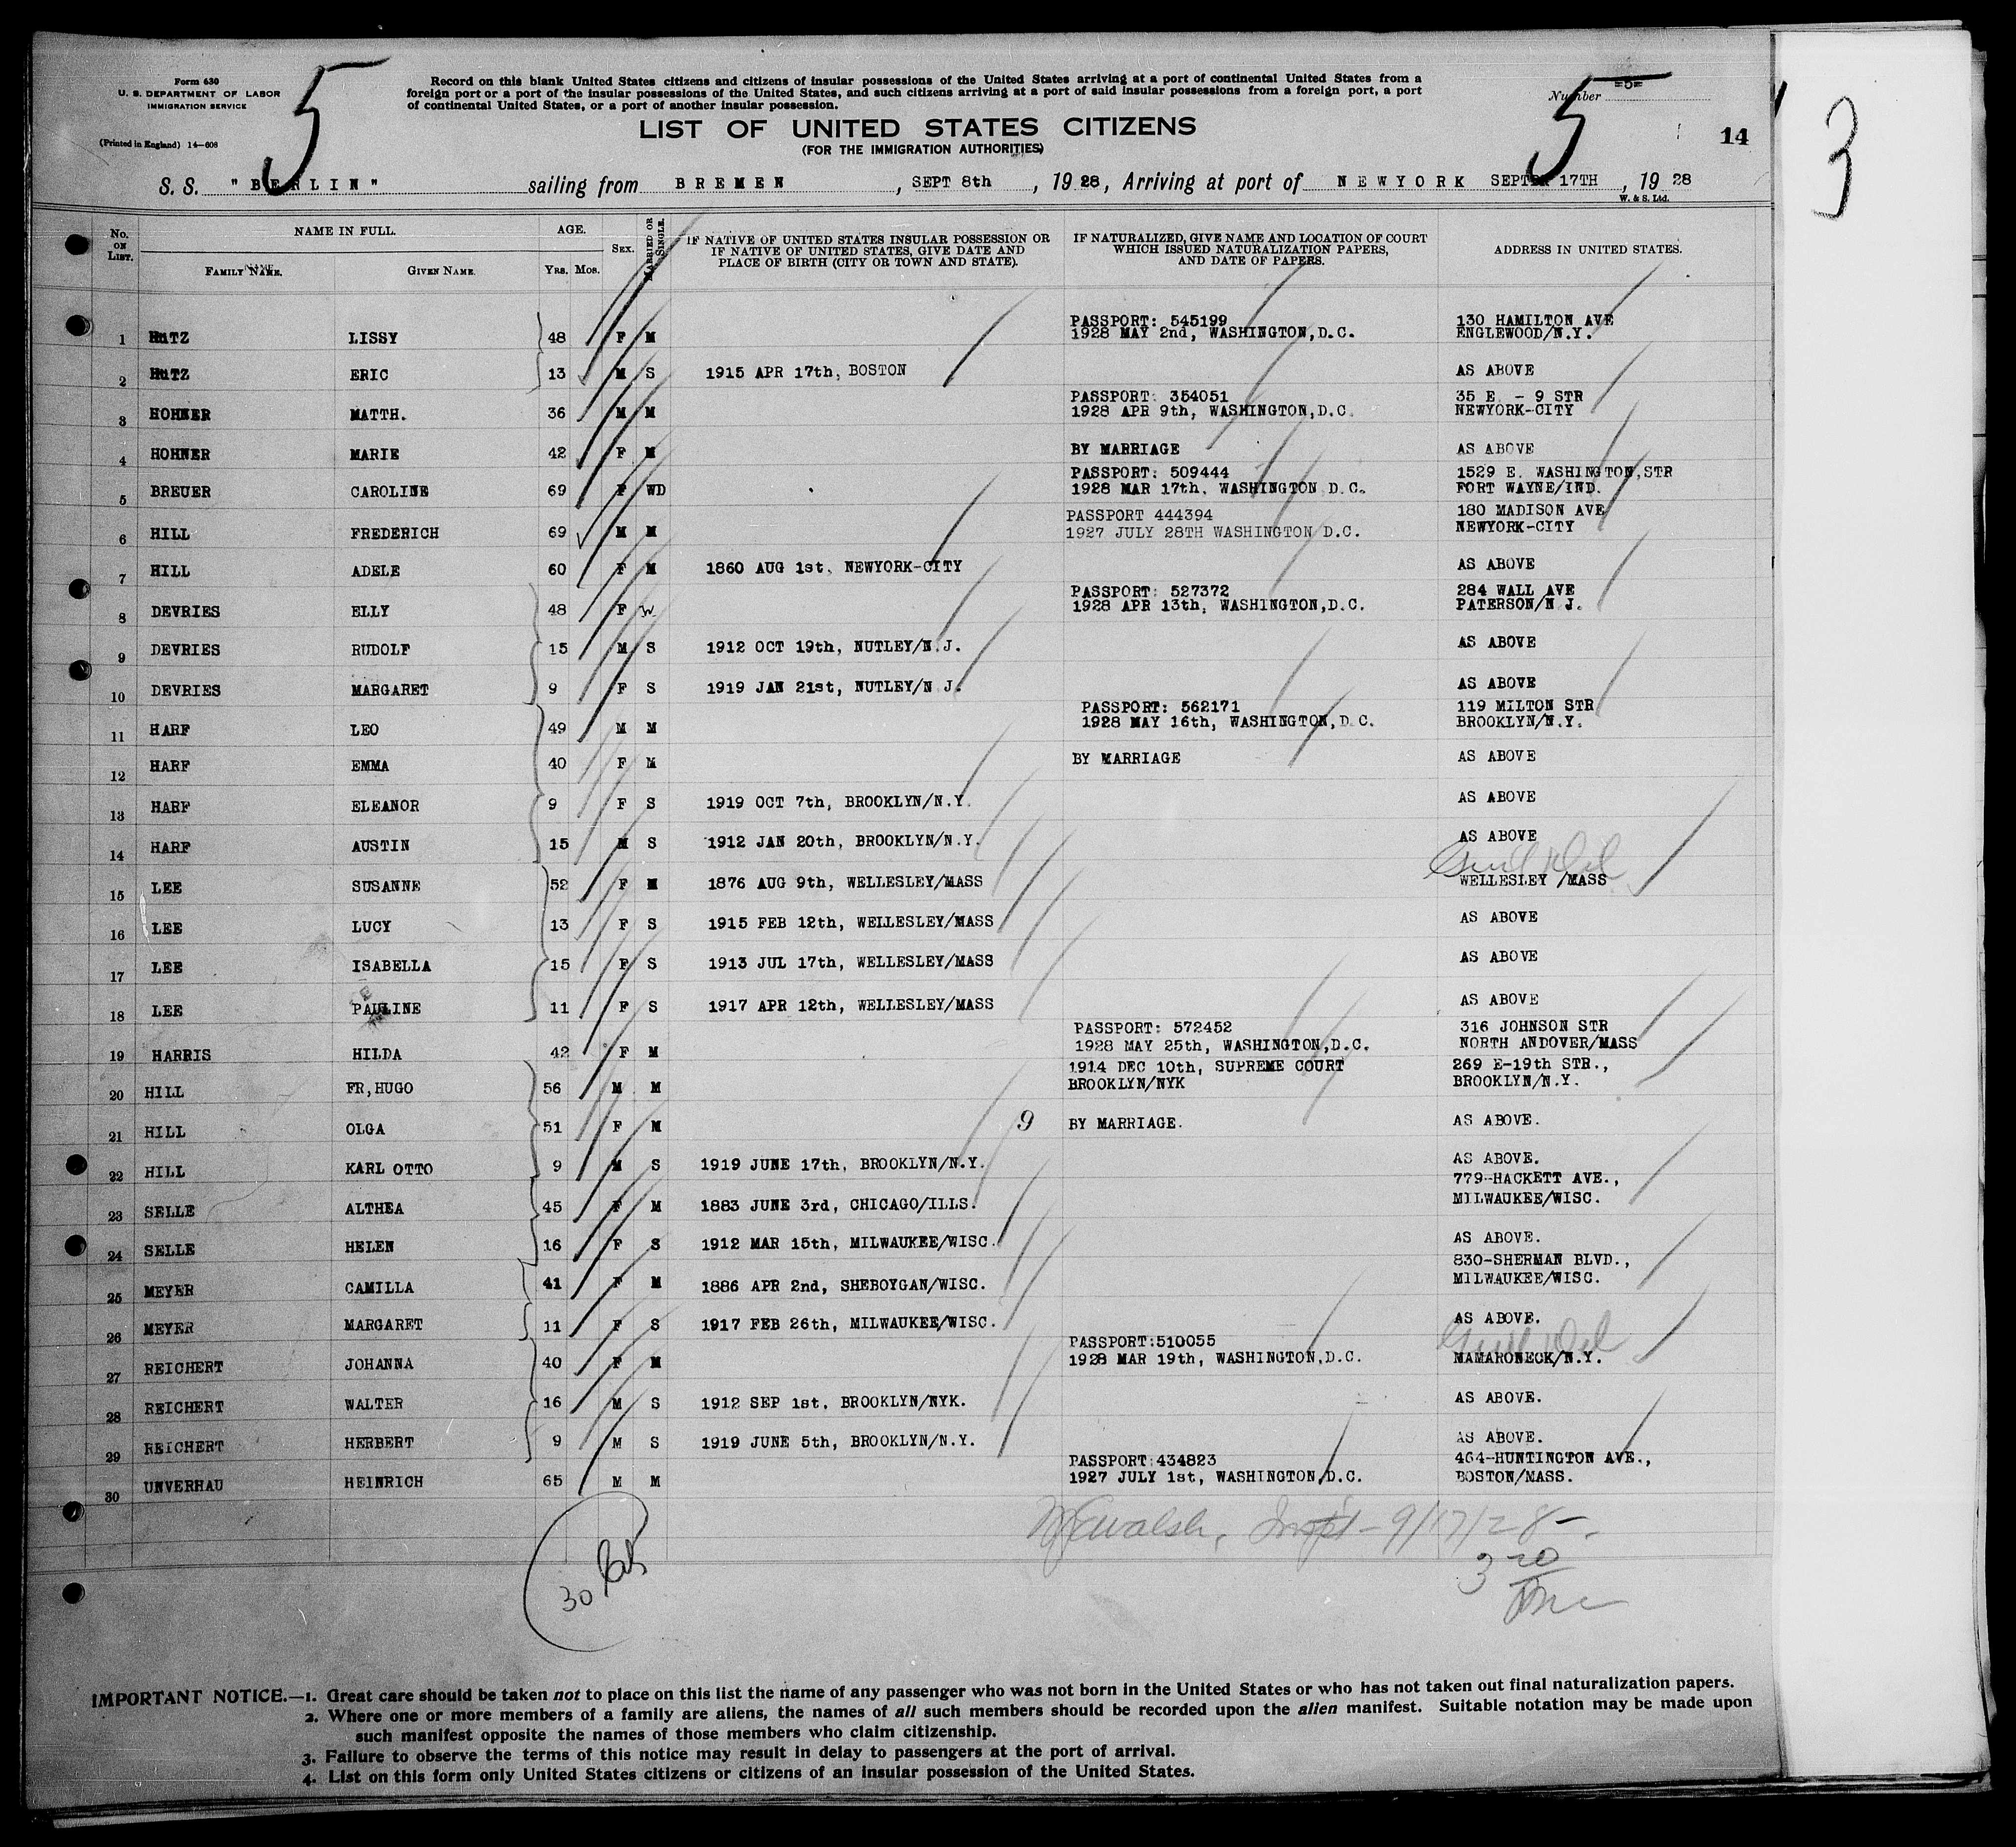 Form 630
U. S. DEPARTMENT OF LABOR
IMMIGRATION SERVICE
(Printed in England) 14—608
5
Record on this blank United States citizens and citizens of insular possessions of the United States arriving at a port of continental United States from a
foreign port or a port of the insular possessions of the United States, and such citizens arriving at a port of said insular possessions from a foreign port, a port
of continental United States, or a port of another insular possession.
Number -5-
5
14
3
LIST OF UNITED STATES CITIZENS
(FOR THE IMMIGRATION AUTHORITIES)
S. S. "BERLIN" sailing from BREMEN, SEPT 8th, 1928, Arriving at port of NEWYORK SEPTBR 17TH, 1928
W. & S. Ltd.
No. ON LIST. NAME IN FULL. AGE. SEX. MARRIED OR SINGLE. IF NATIVE OF UNITED STATES INSULAR POSSESSION OR IF NATIVE OF UNITED STATES, GIVE DATE AND PLACE OF BIRTH (CITY OR TOWN AND STATE). IF NATURALIZED, GIVE NAME AND LOCATION OF COURT WHICH ISSUED NATURALIZATION PAPERS, AND DATE OF PAPERS. ADDRESS IN UNITED STATES.
FAMILY NAME. GIVEN NAME. YRS. MOS.
PASSPORT: 545199 130 HAMILTON AVE
1 HUTZ LISSY 48 F M 1928 MAY 2nd, WASHINGTON,D.C. ENGLEWOOD/N.Y.
2 HUTZ ERIC 13 M S 1915 APR 17th, BOSTON AS ABOVE
PASSPORT: 354051 35 E - 9 STR
3 HOHNER MATTH. 36 M M 1928 APR 9th, WASHINGTON,D.C. NEWYORK-CITY
4 HOHNER MARIE 42 F M BY MARRIAGE AS ABOVE
PASSPORT: 509444 1529 E. WASHINGTON,STR
5 BREUER CAROLINE 69 F WD 1928 MAR 17th, WASHINGTON D.C. FORT WAYNE/IND.
PASSPORT 444394 180 MADISON AVE
6 HILL FREDERICH 69 M M 1927 JULY 28TH WASHINGTON D.C. NEWYORK-CITY
7 HILL ADELE 60 F M 1860 AUG 1st, NEWYORK-CITY AS ABOVE
PASSPORT: 527372 284 WALL AVE
8 DEVRIES ELLY 48 F W 1928 APR 13th, WASHINGTON,D.C. PATERSON/N J.
9 DEVRIES RUDOLF 15 M S 1912 OCT 19th, NUTLEY/N.J. AS ABOVE
10 DEVRIES MARGARET 9 F S 1919 JAN 21st, NUTLEY/N J. AS ABOVE
PASSPORT: 562171 119 MILTON STR
11 HARF LEO 49 M M 1928 MAY 16th, WASHINGTON,D.C. BROOKLYN/N.Y.
12 HARF EMMA 40 F M BY MARRIAGE AS ABOVE
13 HARF ELEANOR 9 F S 1919 OCT 7th, BROOKLYN/N.Y. AS ABOVE
14 HARF AUSTIN 15 M S 1912 JAN 20th, BROOKLYN/N.Y. AS ABOVE
15 LEE SUSANNE 52 F M 1876 AUG 9th, WELLESLEY/MASS WELLESLEY /MASS
16 LEE LUCY 13 F S 1915 FEB 12th, WELLESLEY/MASS AS ABOVE
17 LEE ISABELLA 15 F S 1913 JUL 17th, WELLESLEY/MASS AS ABOVE
18 LEE PAULINE 11 F S 1917 APR 12th, WELLESLEY/MASS AS ABOVE
PASSPORT: 572452 316 JOHNSON STR
19 HARRIS HILDA 42 F M 1928 MAY 25th, WASHINGTON,D.C. NORTH ANDOVER/MASS
1914 DEC 10th, SUPREME COURT 269 E-19th STR.,
20 HILL FR,HUGO 56 M M BROOKLYN/NYK BROOKLYN/N.Y.
21 HILL OLGA 51 F M 9 BY MARRIAGE. AS ABOVE.
22 HILL KARL OTTO 9 M S 1919 JUNE 17th, BROOKLYN/N.Y. AS ABOVE.
779-HACKETT AVE.,
23 SELLE ALTHEA 45 F M 1883 JUNE 3rd, CHICAGO/ILLS. MILWAUKEE/WISC.
24 SELLE HELEN 16 F S 1912 MAR 15th, MILWAUKEE/WISC. AS ABOVE.
830-SHERMAN BLVD.,
25 MEYER CAMILLA 41 F M 1886 APR 2nd, SHEBOYGAN/WISC. MILWAUKEE/WISC.
26 MEYER MARGARET 11 F S 1917 FEB 26th, MILWAUKEE/WISC. AS ABOVE.
PASSPORT:510055
27 REICHERT JOHANNA 40 F M 1928 MAR 19th, WASHINGTON,D.C. MAMARONECK/N.Y.
28 REICHERT WALTER 16 M S 1912 SEP 1st, BROOKLYN/NYK. AS ABOVE.
29 REICHERT HERBERT 9 M S 1919 JUNE 5th, BROOKLYN/N.Y. AS ABOVE.
PASSPORT:434823 464-HUNTINGTON AVE.,
30 UNVERHAU HEINRICH 65 M M 1927 JULY 1st, WASHINGTON,D.C. BOSTON/MASS.
Walsh, Inspt - 9/17/28 -
30
3 20
IMPORTANT NOTICE.—1. Great care should be taken not to place on this list the name of any passenger who was not born in the United States or who has not taken out final naturalization papers.
2. Where one or more members of a family are aliens, the names of all such members should be recorded upon the alien manifest. Suitable notation may be made upon
such manifest opposite the names of those members who claim citizenship.
3. Failure to observe the terms of this notice may result in delay to passengers at the port of arrival.
4. List on this form only United States citizens or citizens of an insular possession of the United States.